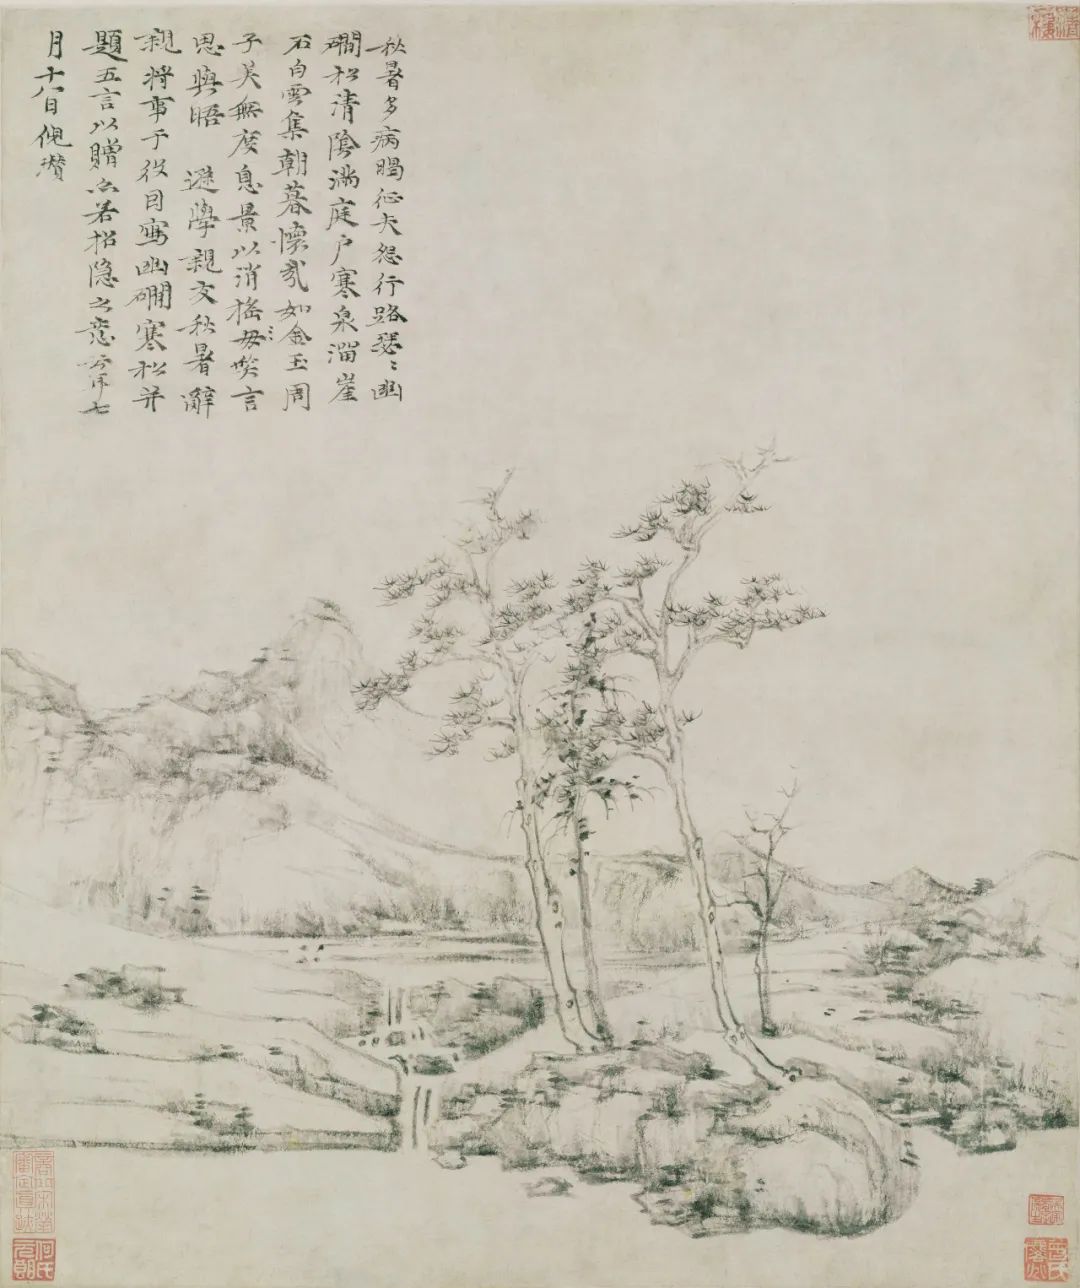 秋暑多病暍征夫怨行路瑟〻幽
磵松清陰滿庭户寒泉溜崖
石白雲集朝暮懷哉如金玉周
子美無度息景以消摇毋笑言
思與晤 遜學親友秋暑辭
親將事于役因寫幽磵寒松并
題五言以贈亦若招隐之意云耳七
月十八日倪瓚
何氏元朗